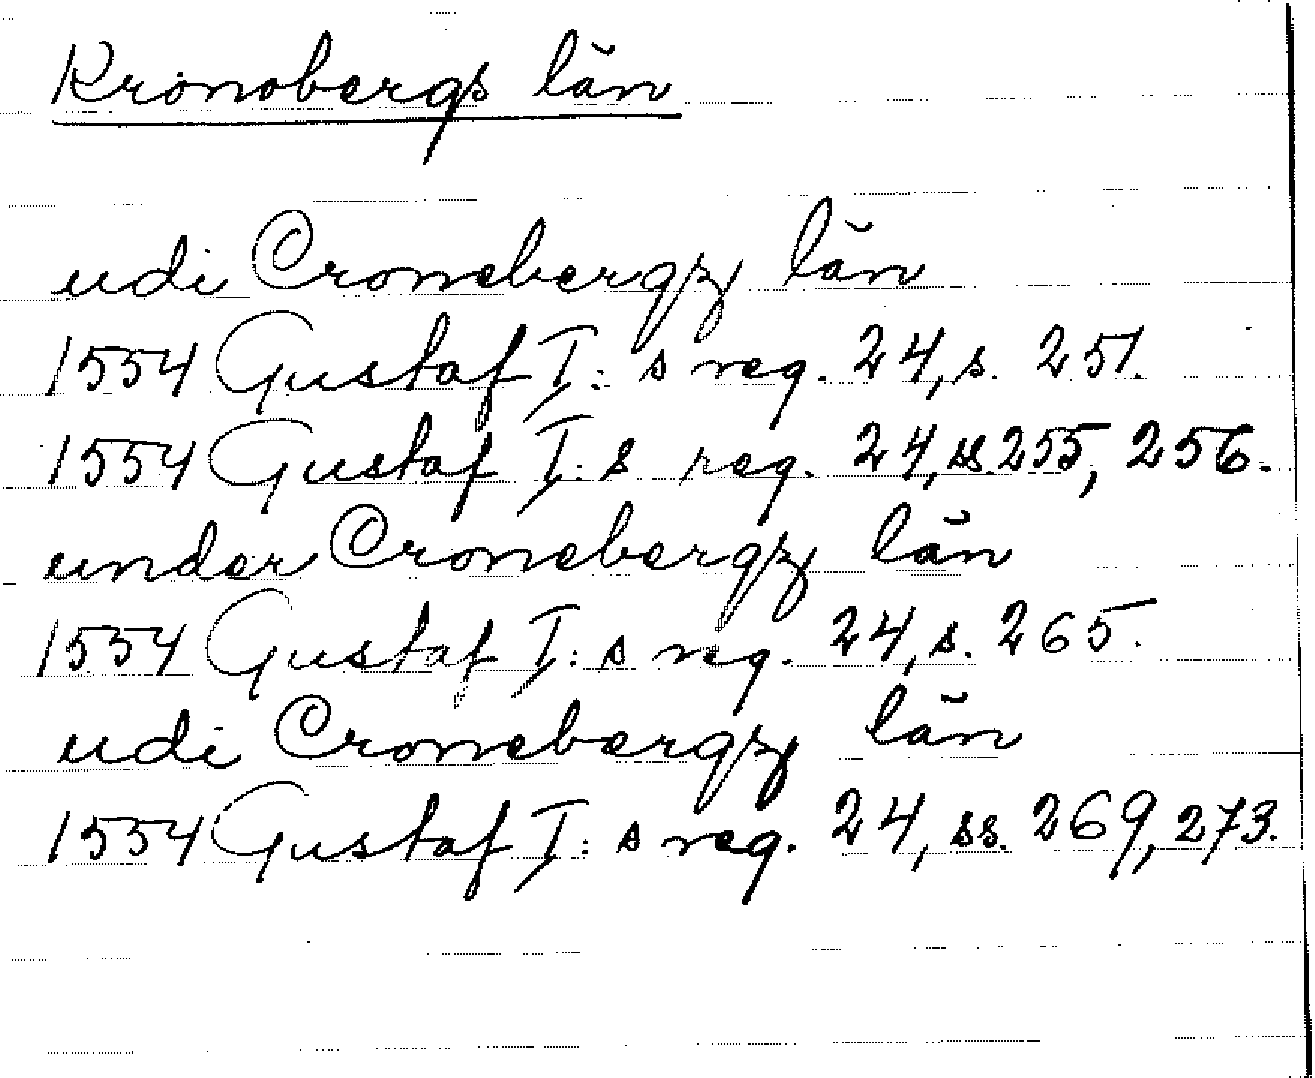 Kronobergs län
udi Cronebergz län
1554 Gustaf I:s reg. 24, s. 251.
1554 Gustaf I:s reg. 24, ss. 255, 256.
under Cronebergz län
1554 Gustaf I:s reg. 24, s. 265.
udi Cronebergz län
1554 Gustaf I:s reg. 24, ss. 269, 273.